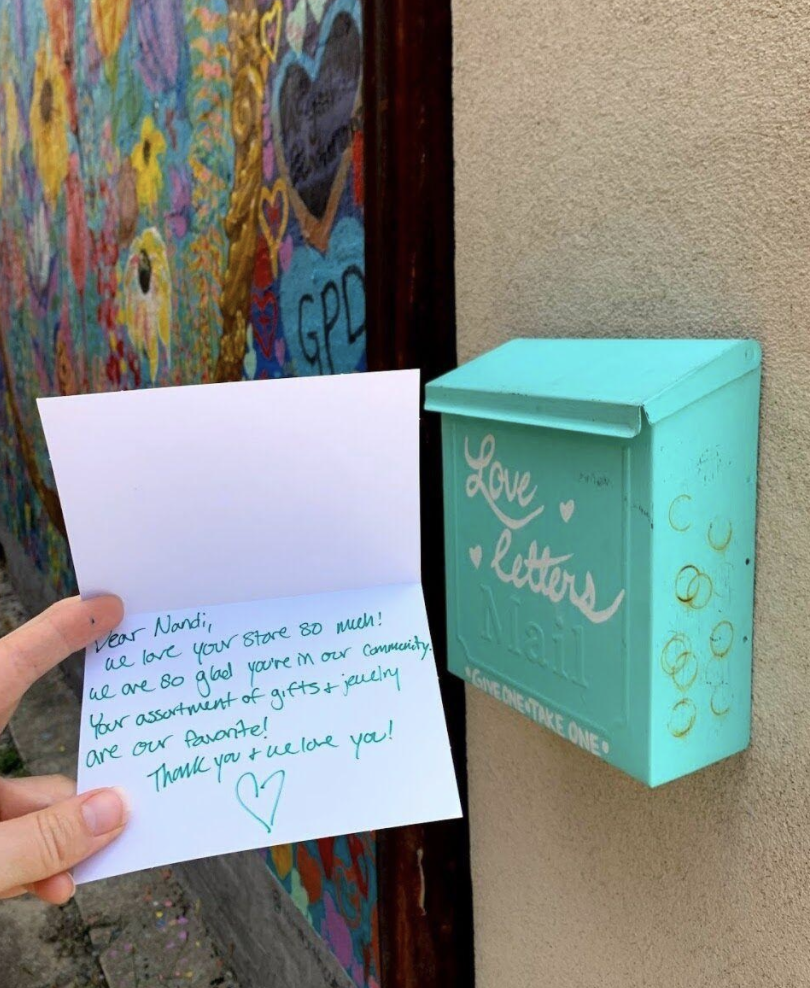 GPD
Dear Nandi,
we love your store so much!
we are so glad you're in our community.
Your assortment of gifts + jewelry
are our favorite!
Thank you + we love you!
Love
letters
Mail
•GIVE ONE•TAKE ONE•